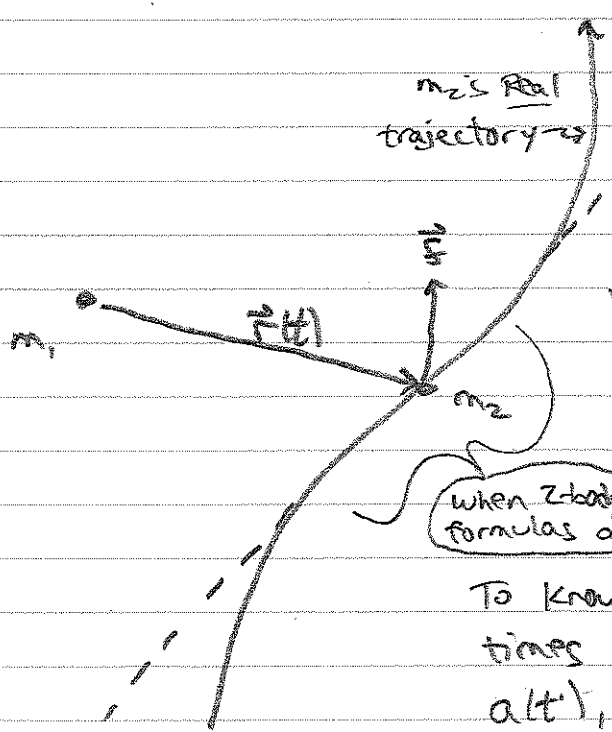 m₂'s Real
trajectory →
r⃗(t)
m₁
m₂
when 2-bod
formulas a
To know
times
a(t'),